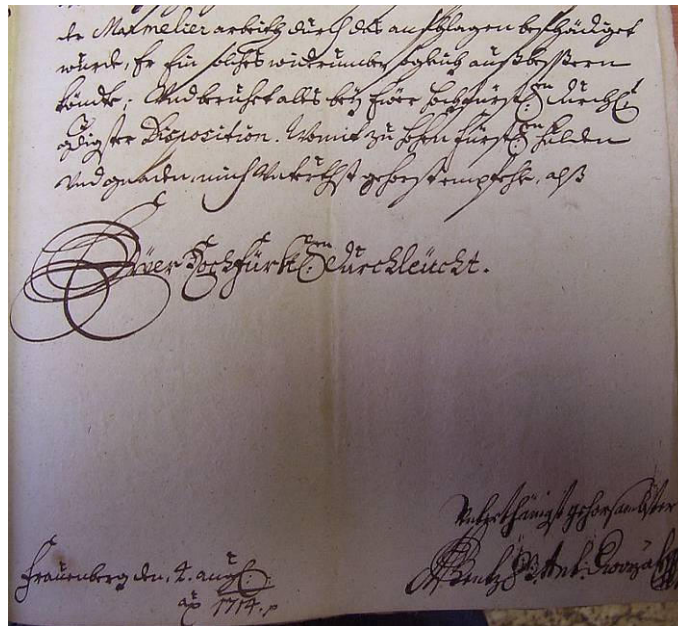 der Marmelier arbeith durch das aufschlagen beschädiget
würde, Er Ein solches widerumben sogleich außbeßern
köndte; Und beruhet alles beÿ Eüer hochfürstl: durchl:
gdigster Disposition. Womit zu hohen fürstl: hulden
Und gnaden, mich Unterthst gehorst empfehle, alß
Eüer Hochfürstl: Durchleücht.
Unterthänigst gehorsambster
Frauenberg den 4. aug:
ao 1714.